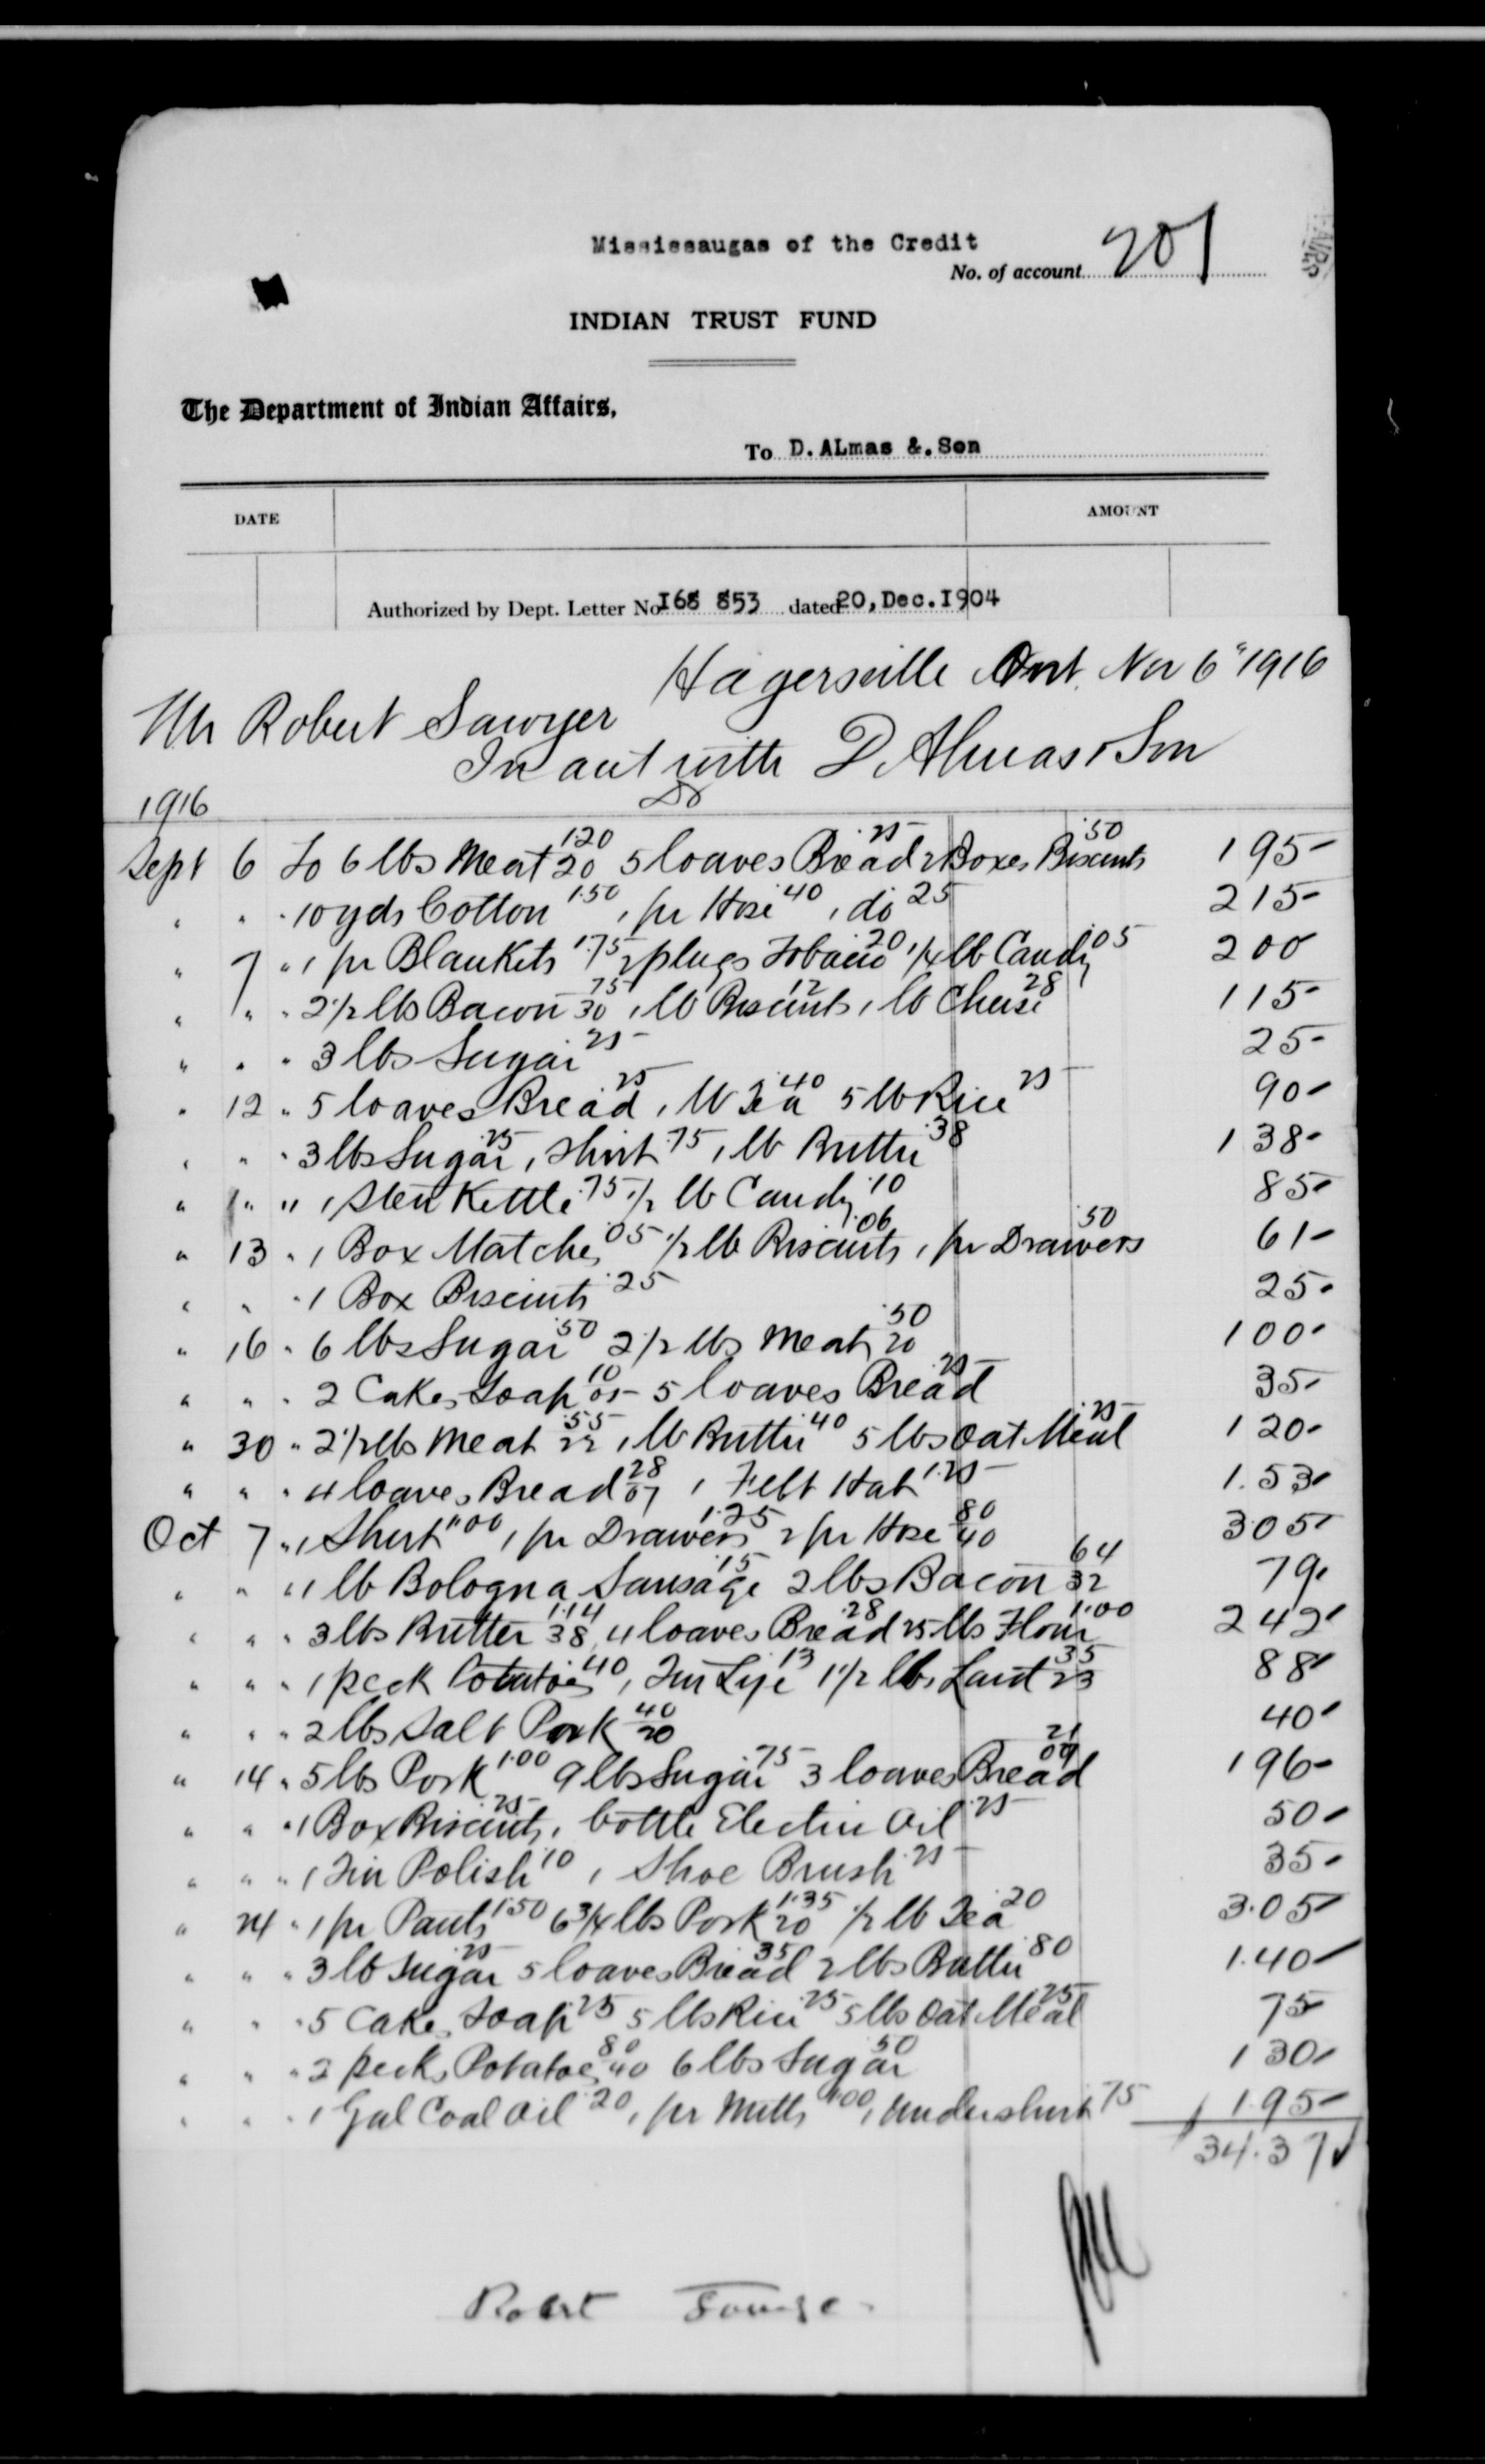 Mississaugas of the Credit
No. of account 201
INDIAN TRUST FUND
The Department of Indian Affairs,
To D. ALmas &. Son
DATE AMOUNT
Authorized by Dept. Letter No 168 853 dated 20, Dec. 1904
Hagersville Ont. Nov 6" 1916
Mr Robert Sawyer
In acct with D. Almas & Son
1916 Dr
Sept 6 To 6 lbs Meat 1.20 20 5 loaves Bread .25 2 Boxes Biscuits .50 195
" " " 10 yds Cotton 1.50 1 pr Hose 40 1 do 25 215
" 7 " 1 pr Blankets 1.75 2 plugs Tobacco 20 1/4 lb Candy 05 200
" " " 2 1/2 lbs Bacon 75 30 1 lb Biscuits 12 1 lb Cheese 28 115
" " " 3 lbs Sugar 25 25
" 12 " 5 loaves Bread 25 1 lb Tea 40 5 lb Rice 25 90
" " " 3 lbs Sugar .25 1 Shirt .75 1 lb Butter .38 138
" " " 1 Stew Kettle .75 1/2 lb Candy .10 85
" 13 " 1 Box Matches 05 1/2 lb Biscuits .06 1 pr Drawers 50 61
" " " 1 Box Biscuits .25 25
" 16 " 6 lbs Sugar 50 2 1/2 lbs Meat 50 20 100
" " " 2 Cakes Soap 10 05 5 loaves Bread .25 35
" 30 " 2 1/2 lbs Meat .55 22 1 lb Butter 40 5 lbs Oat Meal .25 120
" " " 4 loaves Bread 28 07 1 Felt Hat 1.25 1.53
Oct 7 " 1 Shirt 1.00 1 pr Drawers 1.25 2 pr Hose 80 40 305
" " " 1 lb Bologna Sausage 15 2 lbs Bacon 64 32 79
" " " 3 lbs Butter 1.14 38 4 loaves Bread .28 25 lbs Flour 1.00 242
" " " 1 peck Potatoes 40 1 Tin Lye 13 1 1/2 lbs Lard 35 23 88
" " " 2 lbs Salt Pork 40 20 40
" 14 " 5 lbs Pork 1.00 9 lbs Sugar .75 3 loaves Bread 21 07 196
" " " 1 Box Biscuits .25 1 bottle Electric Oil .25 50
" " " 1 Tin Polish 10 1 Shoe Brush .25 35
" 24 " 1 pr Pants 1.50 6 3/4 lbs Pork 1.35 20 1/2 lb Tea 20 3.05
" " " 3 lb Sugar .25 5 loaves Bread 35 2 lbs Butter 80 1.40
" " " 5 Cakes Soap 25 5 lbs Rice .25 5 lbs Oat Meal 25 75
" " " 2 pecks Potatoes 80 40 6 lbs Sugar 50 130
" " " 1 Gal Coal Oil 20 1 pr Mitts 1.00 1 Undershirt 75 1.95
34.37
Robert